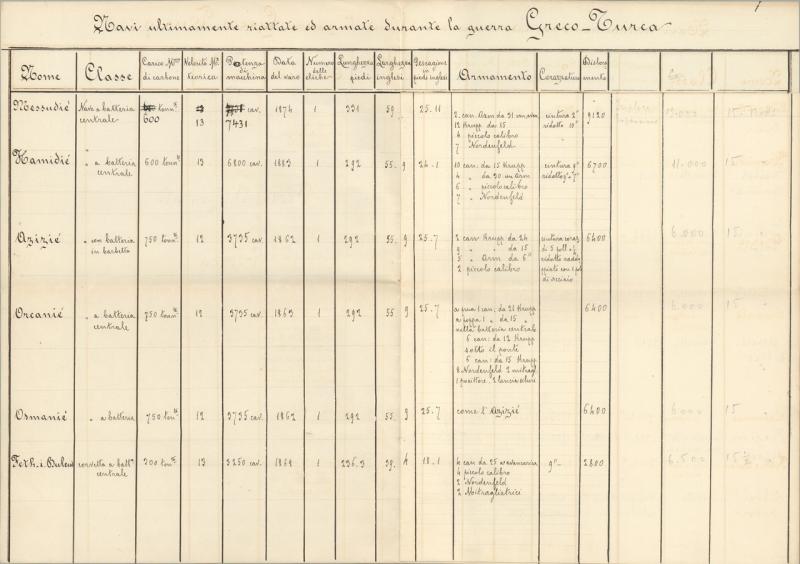 Navi ultimamente riattate ed armate durante la guerra Greco-Turca
Nome Classe Carico Mmo di carbone Velocità Ma teorica Potenza di macchina Data del varo Numero delle eliche Lunghezza piedi Larghezza inglesi Pescagione in piedi inglesi Armamento Corazzatura Disloca mento
Messudié Nave a batteria centrale tonte 600 13 cav. 7431 1874 1 331 59 25.11
2. can. Arm da 31
12 Krupp da 15
4 piccolo calibro
7 Nordenfeld
cintura 2"
ridotto 10"
9120
Hamidié " a batteria centrale 600 tonte 13 6800 cav. 1883 1 292 55. 9 24.1
10 can. da 15 Krupp
4 " da 30 Arm
6 " piccolo calibro
7 " Nordenfeld
cintura
6700
Azizié " con batteria in barbetta 750 tonte 12 3735 cav. 1862 1 292 55. 9 25.7
2 can Krupp da 24
9 " " da 15
3 " Arm da 6"
2 piccolo calibro
cintura coraz
di acciaio
6400
Orcanié " a batteria centrale 750 tonte 12 3735 cav. 1863 1 292 55 9 25.7
a prua 1 can: da 21 Krupp
a poppa 1 " da 15 "
nella batteria centrale
6 can: da 12 Krupp
sotto il ponte
5 can: da 15 Krupp
8 Nordenfeld 2 mitragl.
2 lancia siluri
6400
Osmanié " a batteria 750 tonte 12 3735 cav. 1862 1 292 55. 9 25.7 come l'Azizié 6400
Feth-i-Bulend corvetta a batta centrale 300 tonte 13 3250 cav. 1869 1 236.3 39. 4 18.1
4 can da 25
4 piccolo calibro
2 Nordenfeld
2 Mitragliatrici
9" 2800